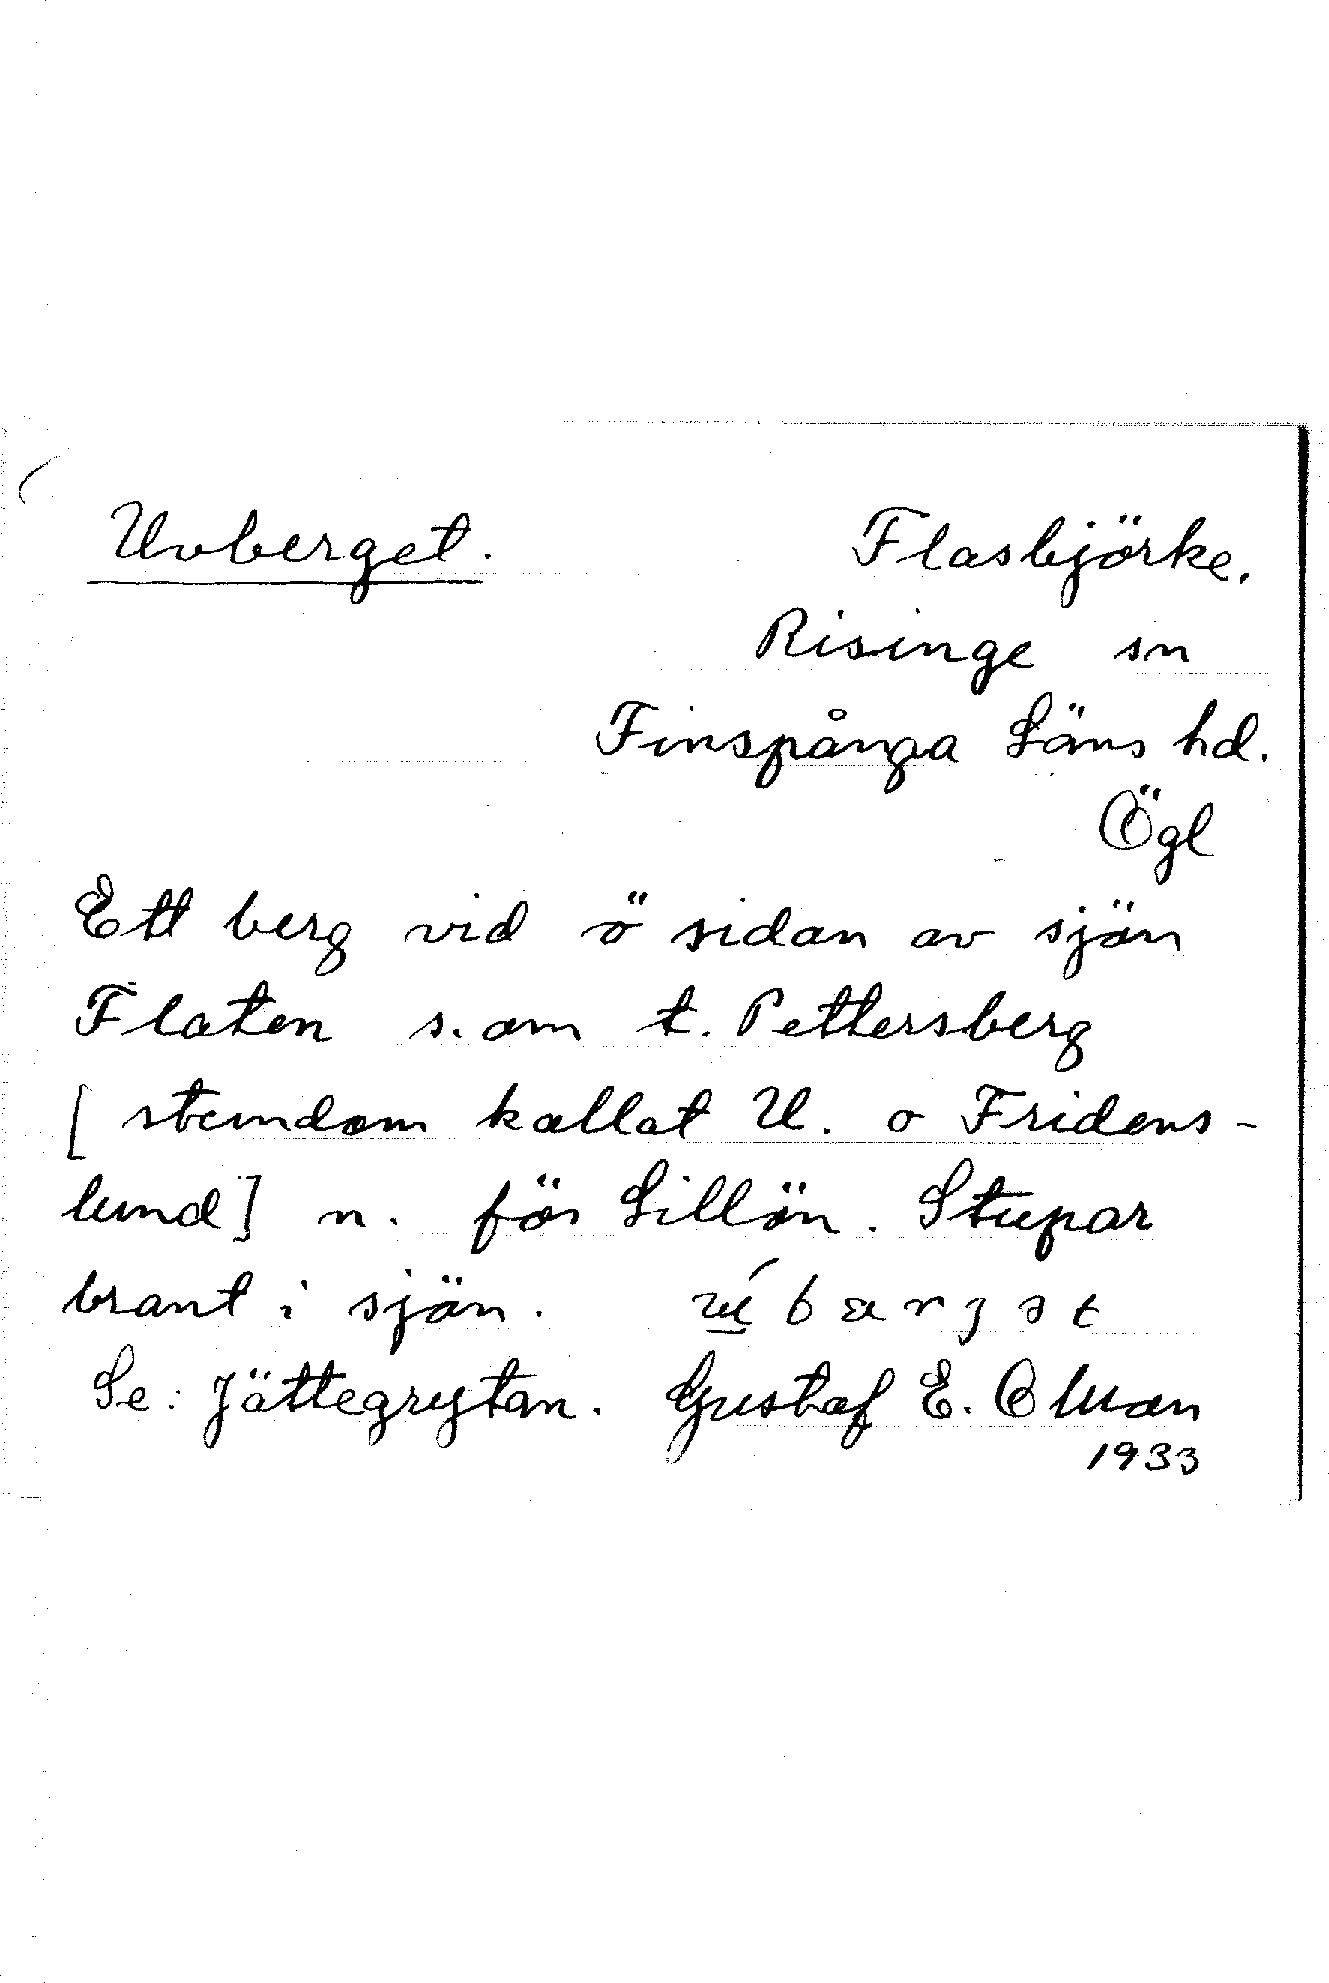 Uvberget.
Flasbjörke.
Risinge sn
Finspånga Läns hd.
Ögl
Ett berg vid ö sidan av sjön
Flaten s. om t. Pettersberg
[ stundom kallat U. o Fridens-
lund] n. för Lillön. Stupar
brant i sjön.
Se: Jättegrytan. Gustaf E. Olman
1933